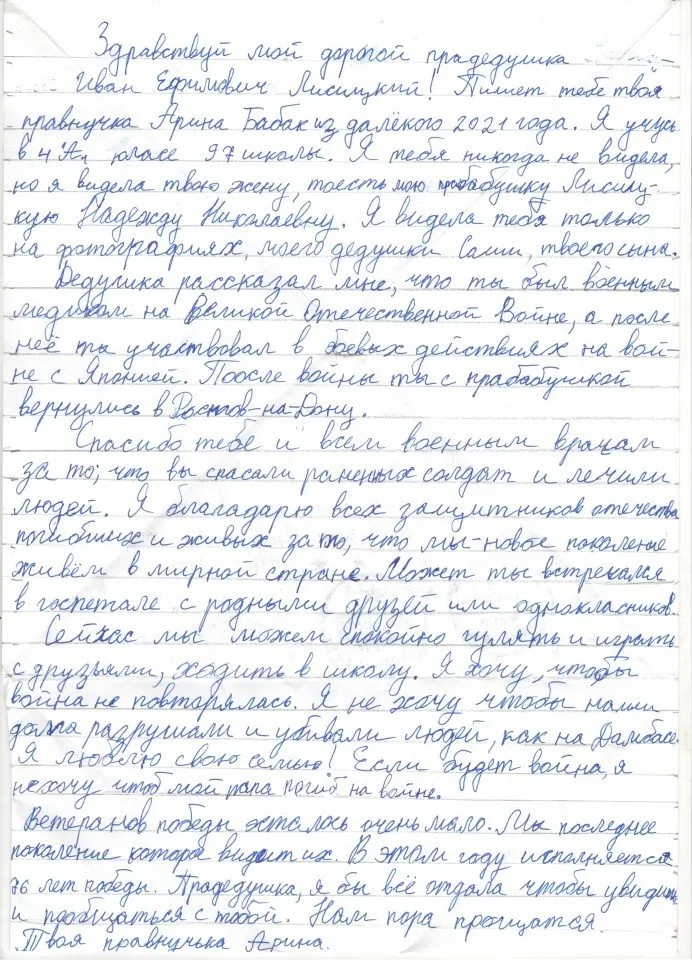 Здравствуй мой дорогой прадедушка
Иван Ефимович Лисицкий! Пишет тебе твоя
правнучка Арина Бабак из далёкого 2021 года. Я учусь
в 4 "А" класе 97 школы. Я тебя никогда не видела,
но я видела твою жену, тоесть мою прабабушку Лисиц-
кую Надежду Николаевну. Я видела тебя только
на фотографиях, моего дедушки Саши, твоего сына.
Дедушка рассказал мне, что ты был военным
медиком на Великой Отечественной Войне, а после
неё ты участвовал в боевых действиях на вой-
не с Японией. Поосле войны ты с прабабушкой
вернулись в Ростов-на-Дону.
Спасибо тебе и всем военным врачам
за то, что вы спасали раненных солдат и лечили
людей. Я благадарю всех защитников отечества
погибших и живых за то, что мы-новое поколение
живём в мирной стране. Может ты встречался
в госпетале с родными друзей или однокласников.
Сейчас мы можем спокойно гулять и играть
с друзьями, ходить в школу. Я хочу, чтобы
война не повторялась. Я не хочу чтобы наши
дома разрушали и убивали людей, как на Дамбасе.
Я люблю свою семью! Если будет война, я
нехочу чтоб мой папа погиб на войне.
Ветеранов победы осталось очень мало. Мы последнее
поколение которое видит их. В этом году исполняется
76 лет победы. Прадедушка, я бы всё отдала чтобы увидить
и пообщаться с тобой. Нам пора прощатся.
Твоя правнучька Арина.